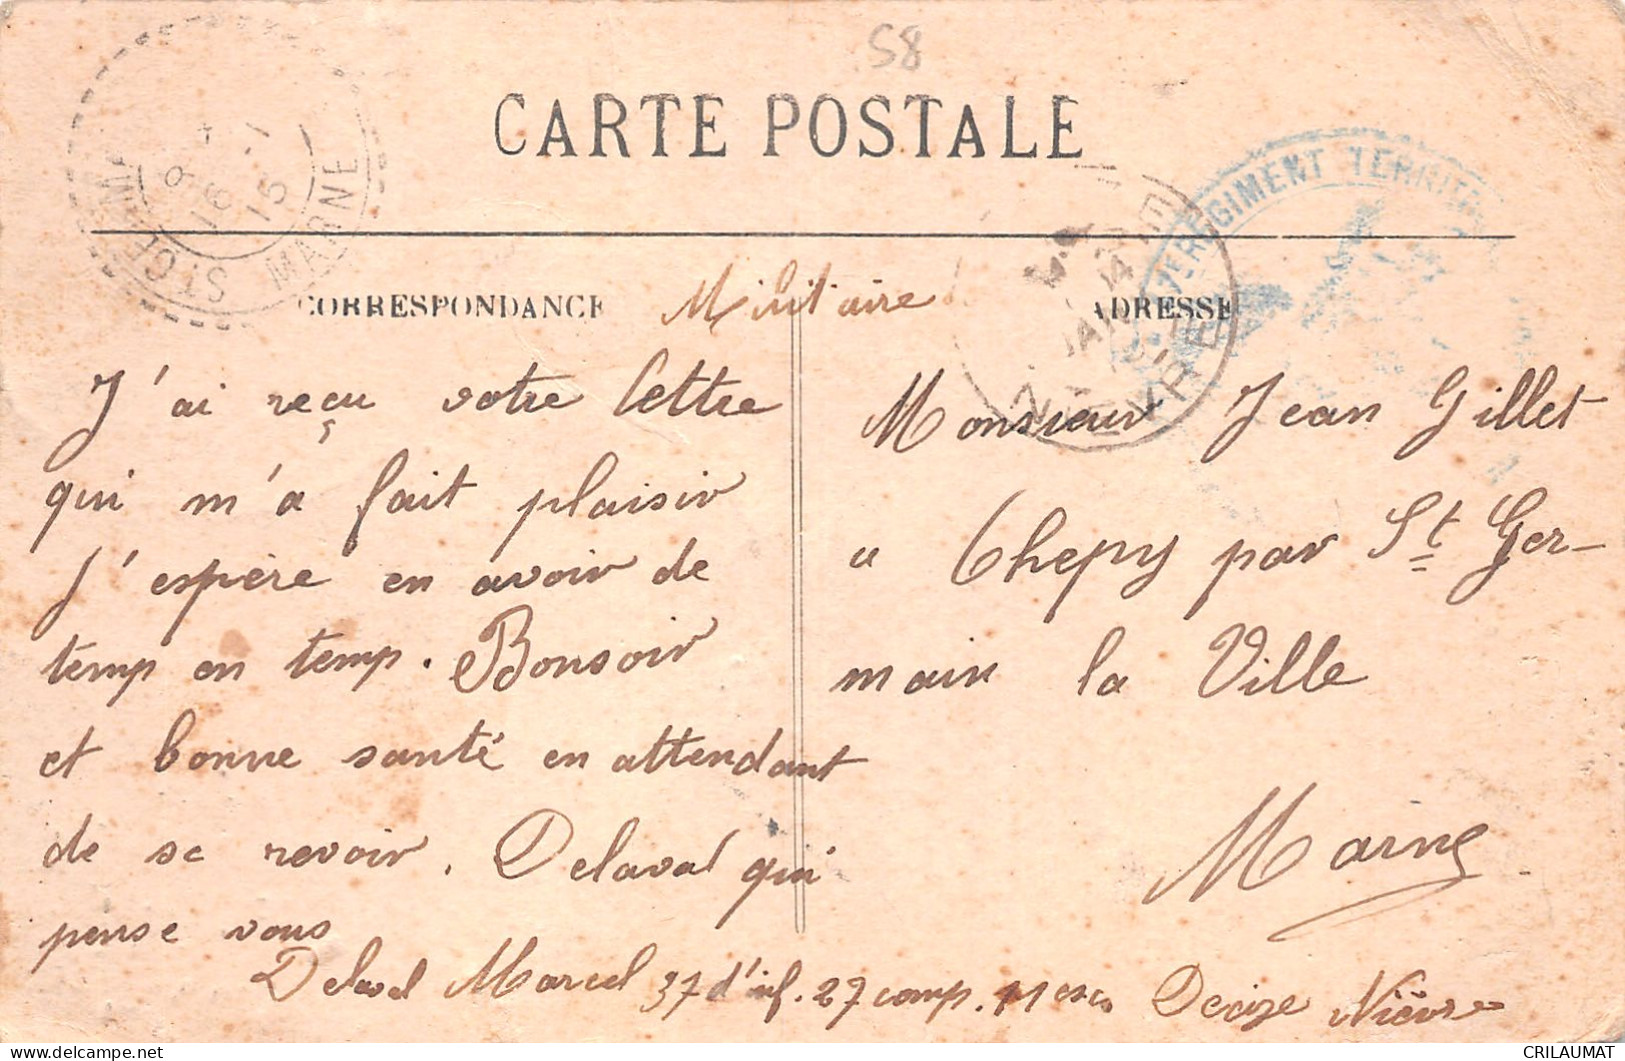 58
CARTE POSTALE
ST GERMAIN
MARNE
16 - 1
15
REGIMENT TERRIT
CORRESPONDANCE
Militaire
ADRESSE
J'ai reçu votre lettre
qui m'a fait plaisir
J'espère en avoir de
temp en temp. Bonsoir
et bonne santé en attendant
de se revoir. Delaval qui
pense vous
Delaval Marcel 37 d'inf. 27 comp. 11 esc Decize Nièvre
Monsieur Jean Gillet
a Chepy par St Ger-
main la Ville
Marne
CRILAUMAT
delcampe.net